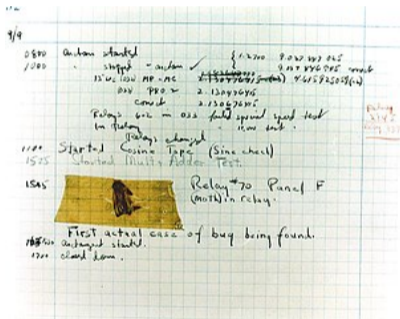 9/9
0800 antan started
1000 " stopped - antan ✓ { 1.2700 9.037 847 025
9.037 846 995 correct
13"uc (032) MP - MC 4.615925059(-2)
(033) PRO 2 2.130476415
correct 2.130676415
Relays 6-2 in 033 failed special speed test
in relay " 11,000 test.
Relays changed
1100 Started Cosine Tape (Sine check)
1525 Started Multi Adder Test.
1545 Relay #70 Panel F
(moth) in relay.
First actual case of bug being found.
antangent started.
1700 closed down.
Relay